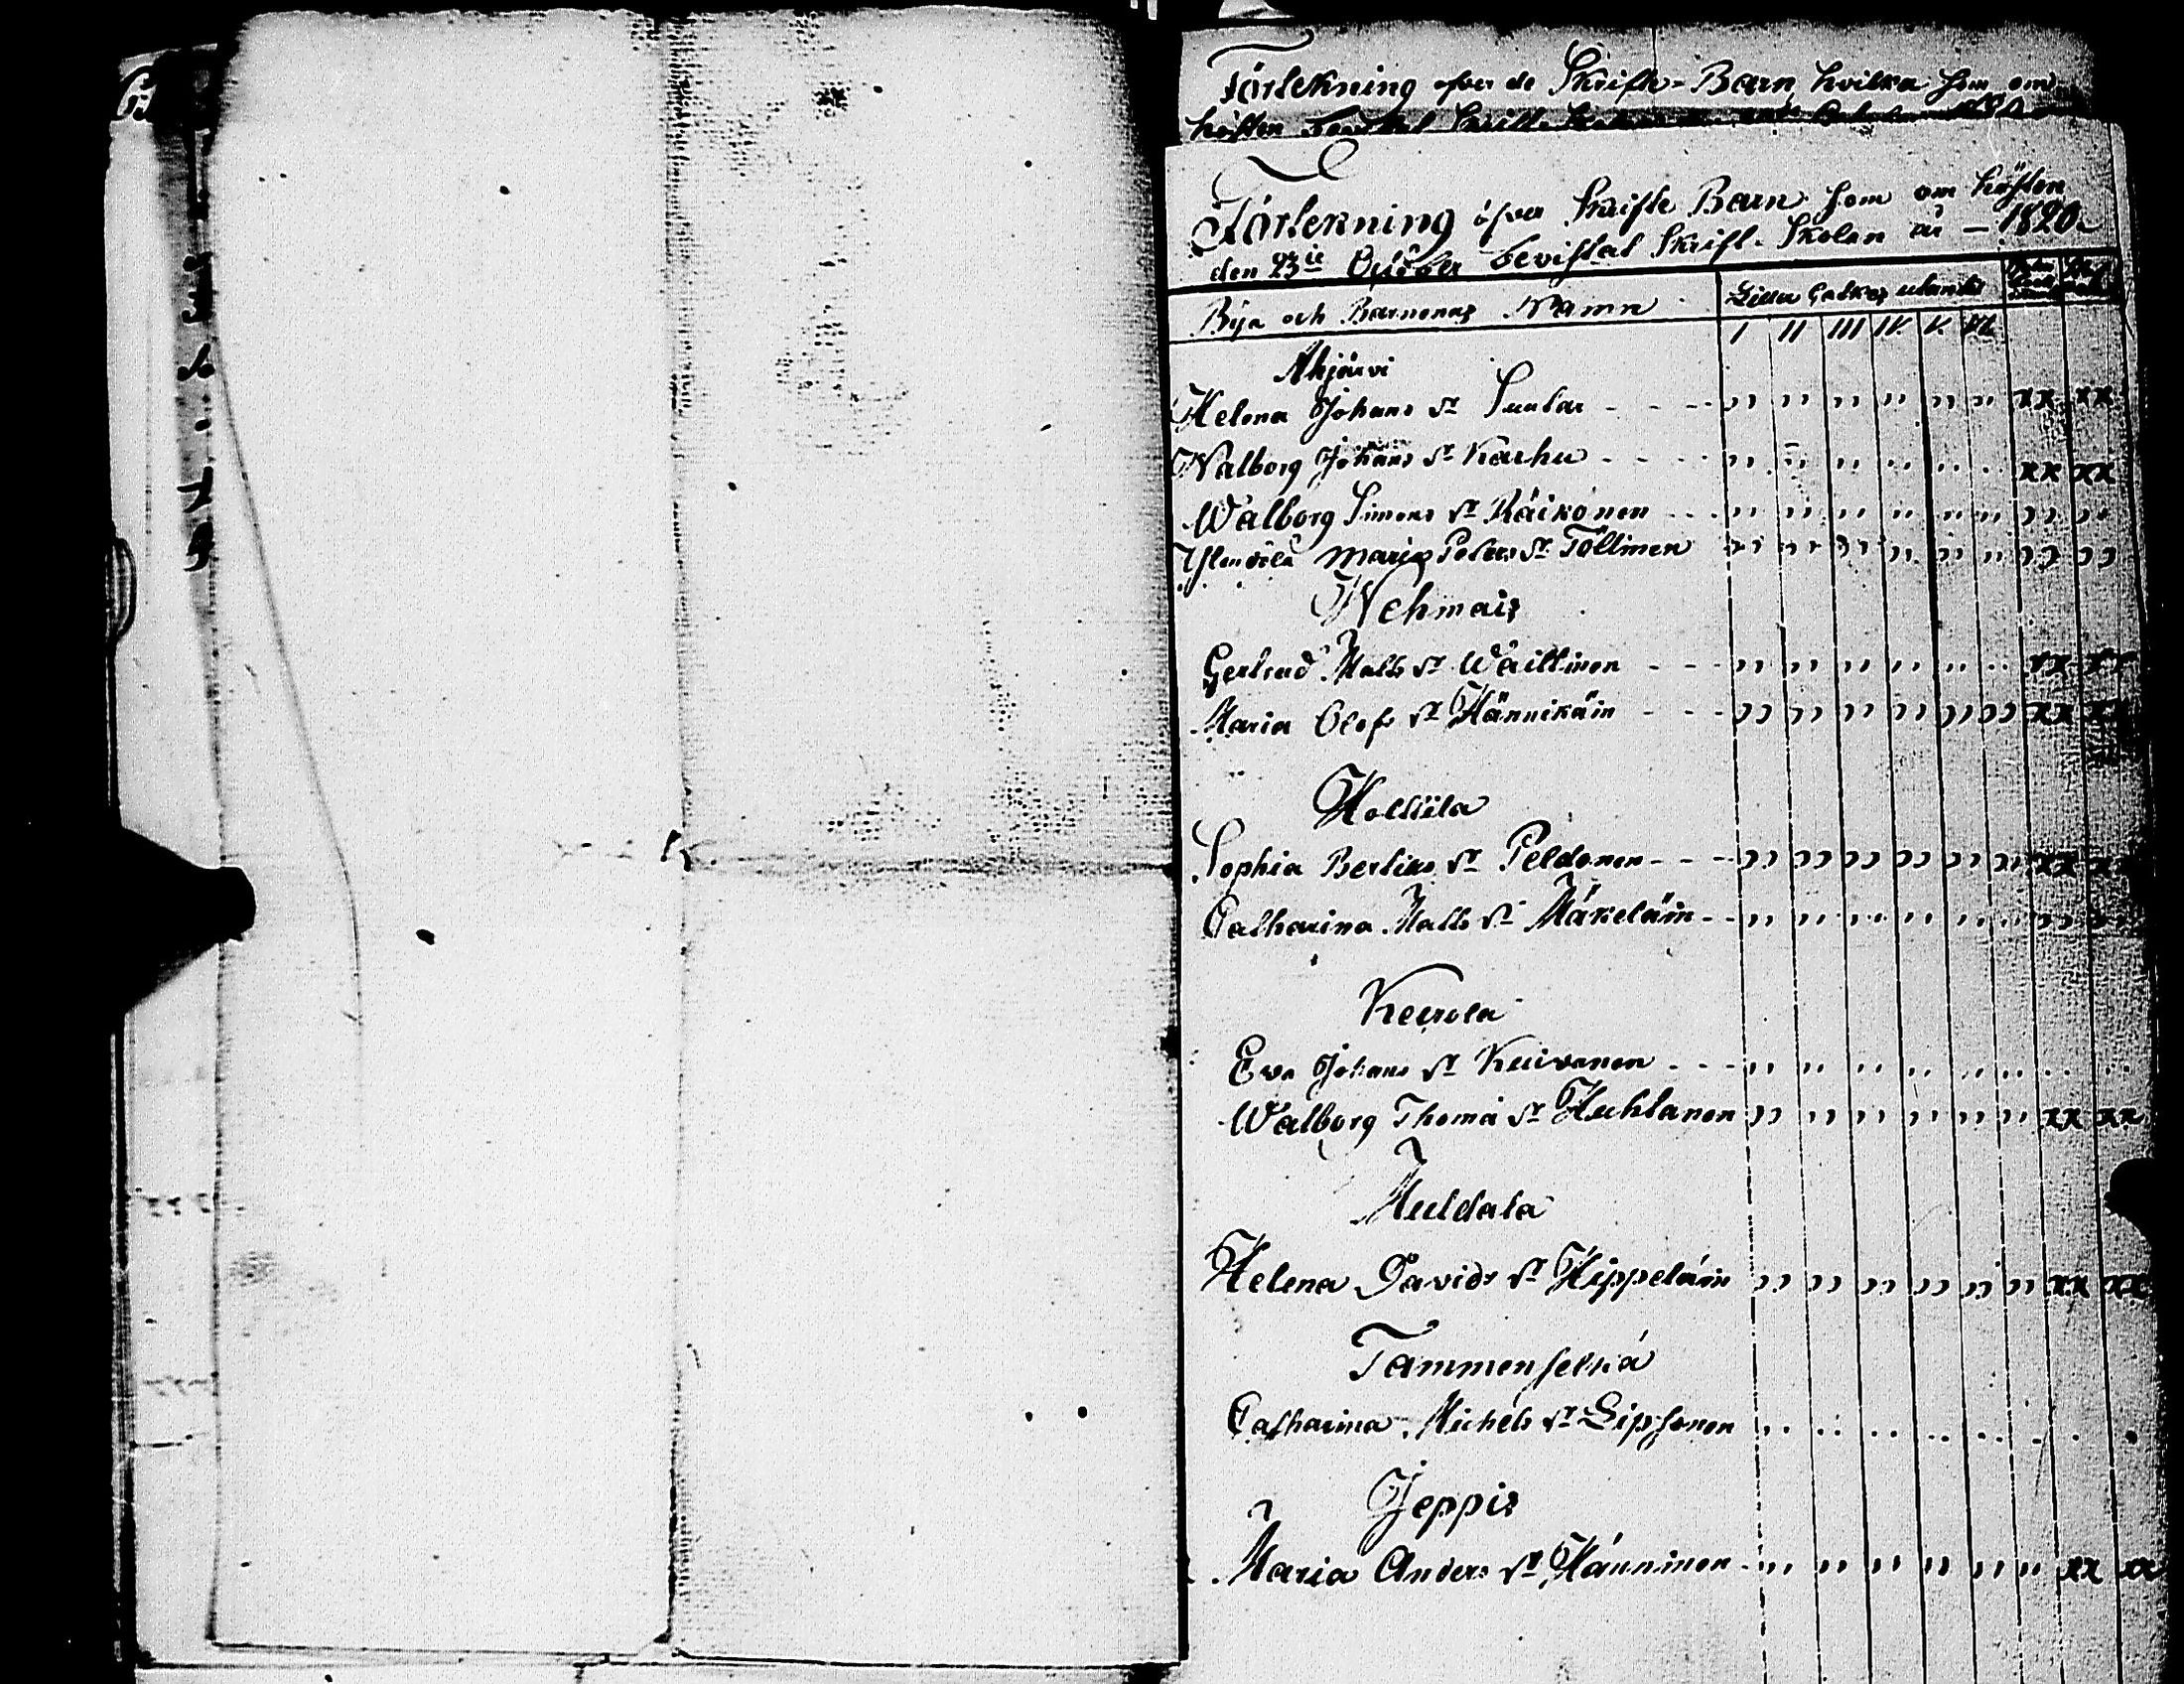 Förtekning öfver de Skrifte-Barn hvilka som om
hösten bevistat Skrift-
Förtekning öfver Skrifte Barn som om hösten
den 23ie October bevistat Skrift-Skolan år — 1820.
Bya och Barnenas Namn Lilla Catkes utantil
I II III IV V VI
Ahjärvi
Helena Johans dr Suutar - - - " " " " " " xx xx
Walborg Johans dr Karhu - - - " " " " " " xx xx
Walborg Simons dr Räikönen - - - " " " " " " " "
Maria Peters dr Töllinen " " " " " " " "
Wehmais
Gertrud Matts dr Wäittinen - - - " " " " " " xx xx
Maria Olofs dr Hännikäin - - - " " " " " " xx xx
Holttila
Sophia Bertils dr Peldonen - - - " " " " " " xx xx
Catharina Matts dr Mäkeläin - - " " " " " " " "
Keurola
Eva Johans dr Kuivanen - - - " " " " " " " "
Walborg Thoma dr Huhtanen " " " " " " xx xx
Muldala
Helena Davids dr Hyppeläin " " " " " " xx xx
Tammenselkä
Catharina Michels dr Lipsonen " " " " " " " "
Jeppis
Maria Anders dr Hänninen - " " " " " " xx xx